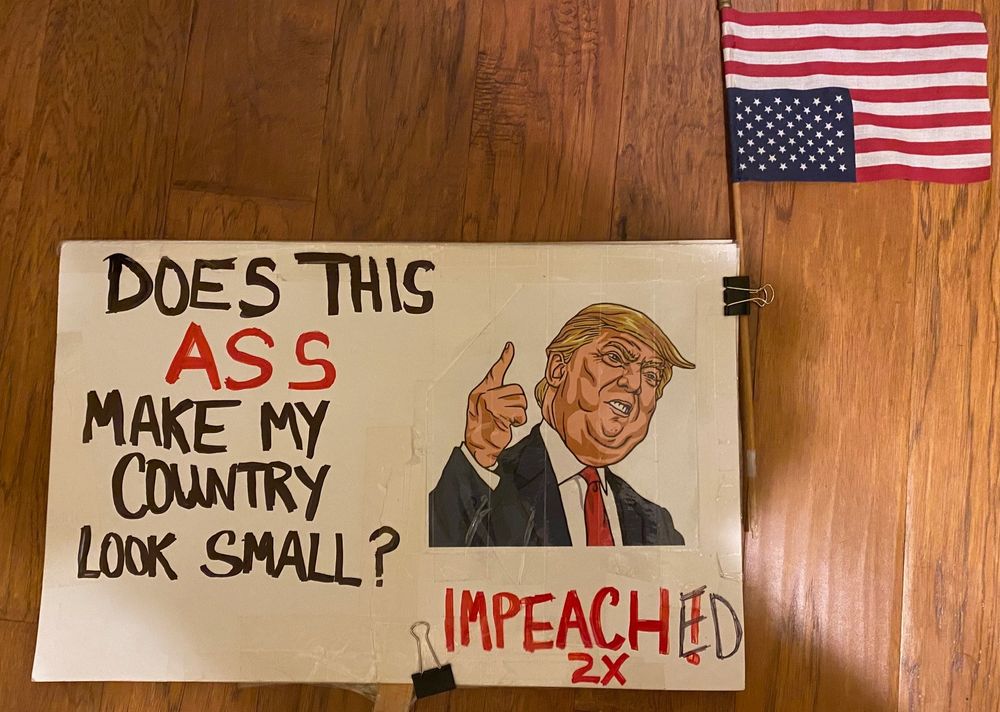 DOES THIS
ASS
MAKE MY
COUNTRY
LOOK SMALL?
IMPEACH!ED
2X